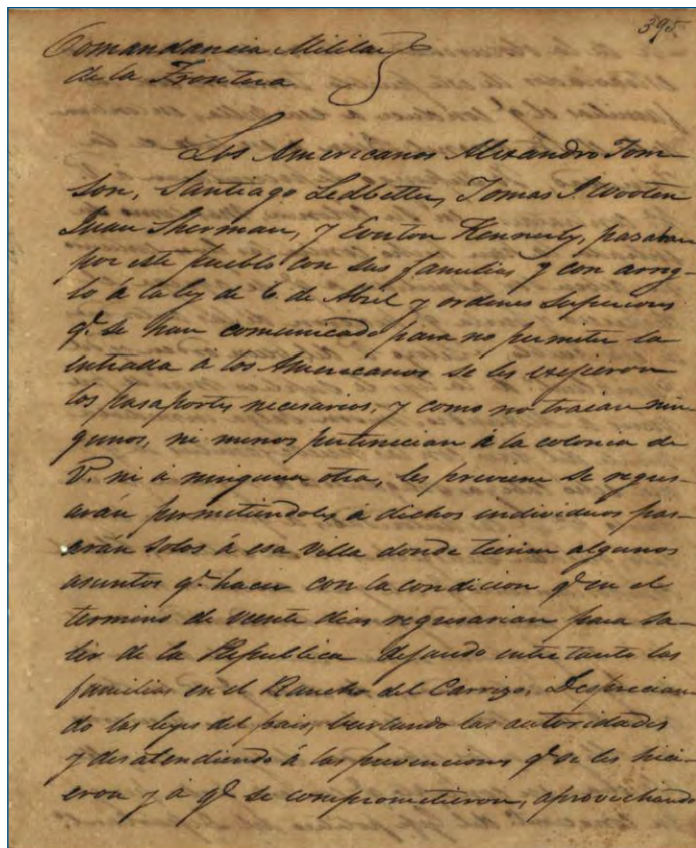 395
Comandancia Militar
de la Frontera
Los Americanos Alexandro Tom-
son, Santiago Ledbetter, Tomas J. Wooten
Juan Sherman, y Everton Kennerly, pasaban
por este pueblo con sus familias y con arreg-
lo á la ley de 6 de Abril y ordenes superiores
qe. se han comunicado para no permitir la
entrada a los Americanos se les exijieron
los pasaportes necesarios, y como no traian nin-
gunos, ni menos pertenecian á la colonia de
V. ni á ninguna otra, les previene se regre-
sarán permitiendoles á dichos individuos pa-
sarán solos á esa Villa donde tienen algunos
asuntos qe. hacer con la condicion qe. en el
termino de veente dias regresarian para sa-
lir de la Republica dejando entre tanto las
familias en el Rancho del Carrizo. Desprecian-
do las leyes del pais, burlando las autoridades
y desatendiendo á las prevenciones qe. se les hici-
eron y á qe. se comprometieron, aprovechando